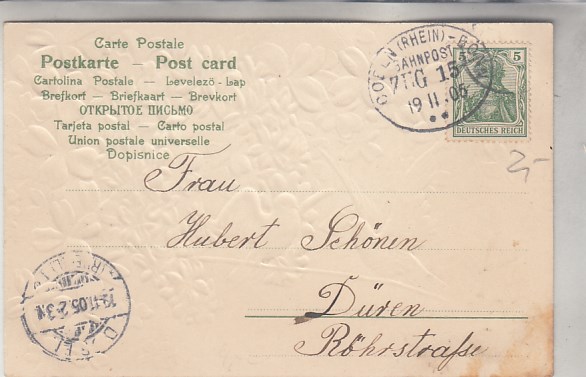 Carte Postale
Postkarte — Post card
Cartolina Postale — Levelező-Lap
Brefkort — Briefkaart — Brevkort
ОТКРЫТОЕ ПИСЬМО
Tarjeta postal — Carto postal
Union postale universelle
Dopisnice
(RHEIN)
BAHNPOST
ZUG 15
19 11 05
5
DEUTSCHES REICH
Frau
Hubert Schönen
Düren
Röhrstraße